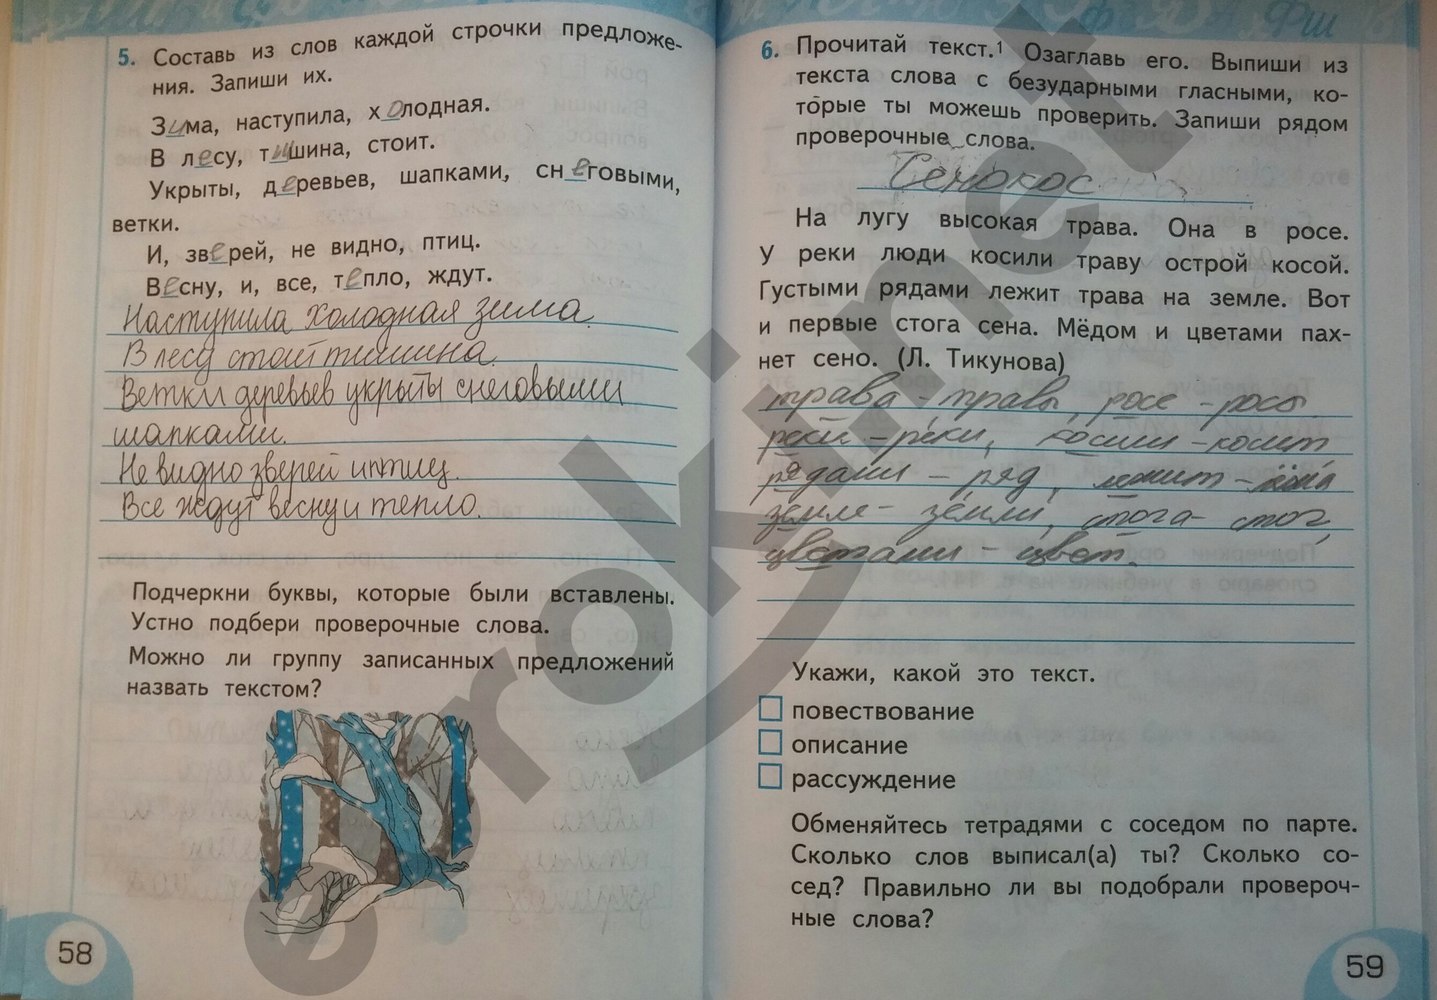 5. Составь из слов каждой строчки предложе-
ния. Запиши их.
Зима, наступила, холодная.
В лесу, тишина, стоит.
Укрыты, деревьев, шапками, снеговыми,
ветки.
И, зверей, не видно, птиц.
Весну, и, все, тепло, ждут.
Наступила холодная зима.
В лесу стоит тишина.
Ветки деревьев укрыты снеговыми
шапками.
Не видно зверей и птиц.
Все ждут весну и тепло.
Подчеркни буквы, которые были вставлены.
Устно подбери проверочные слова.
Можно ли группу записанных предложений
назвать текстом?
58
6. Прочитай текст.1 Озаглавь его. Выпиши из
текста слова с безударными гласными, ко-
торые ты можешь проверить. Запиши рядом
проверочные слова.
Сенокос
На лугу высокая трава. Она в росе.
У реки люди косили траву острой косой.
Густыми рядами лежит трава на земле. Вот
и первые стога сена. Мёдом и цветами пах-
нет сено. (Л. Тикунова)
трава - травы, росе - росы
реки - реки, косили - косит
рядами - ряд, лежит -
земле - земли, стога - стог,
цветами - цвет.
Укажи, какой это текст.
повествование
описание
рассуждение
Обменяйтесь тетрадями с соседом по парте.
Сколько слов выписал(а) ты? Сколько со-
сед? Правильно ли вы подобрали провероч-
ные слова?
59
erokinet